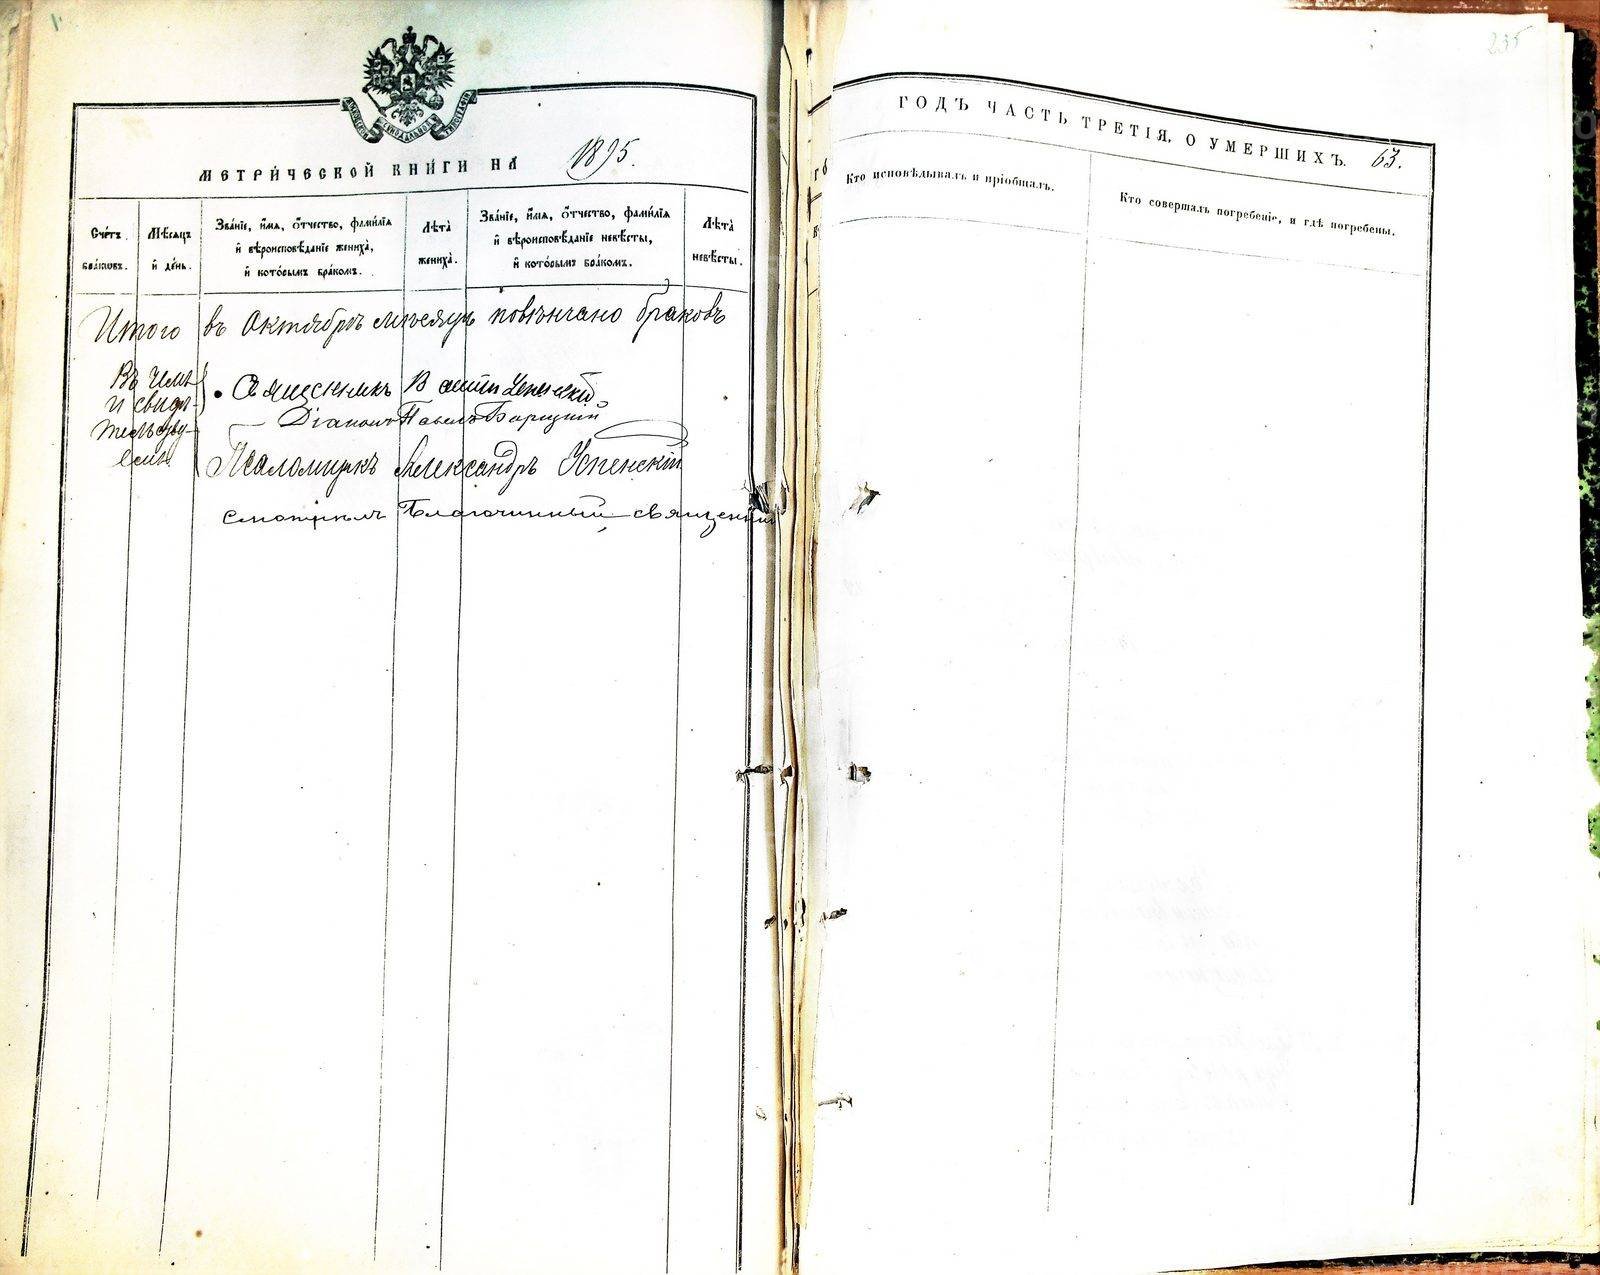 МОСКОВСКОЙ СѴНОДАЛЬНОЙ ТИПОГРАФІИ
МЕТРИ́ЧЕСКОЙ КНИ́ГИ НА 1895.
Сче́тъ бра́ковъ.
Мѣ́сяцъ и҆ де́нь.
Зва́ніе, и҆́мя, ѻ҆́тчество, фами́лія и҆ вѣроисповѣ́даніе жениха̀, и҆ кото́рымъ бра́комъ.
Лѣ́та жениха̀.
Зва́ніе, и҆́мя, ѻ҆́тчество, фами́лія и҆ вѣроисповѣ́даніе невѣ́сты, и҆ кото́рымъ бра́комъ.
Лѣ́та невѣ́сты.
Итого въ Октябрѣ мѣсяцѣ повѣнчано браковъ
Въ чемъ
и свидѣ-
тельству-
емъ
Священникъ Успенскій
Діаконъ Павелъ
Псаломщикъ Александръ Успенскій
Смотрѣлъ Благочинный священник
235
ГОДЪ ЧАСТЬ ТРЕТІЯ, О УМЕРШИХЪ. 63.
Кто исповѣдывалъ и пріобщалъ.
Кто совершалъ погребеніе, и гдѣ погребены.